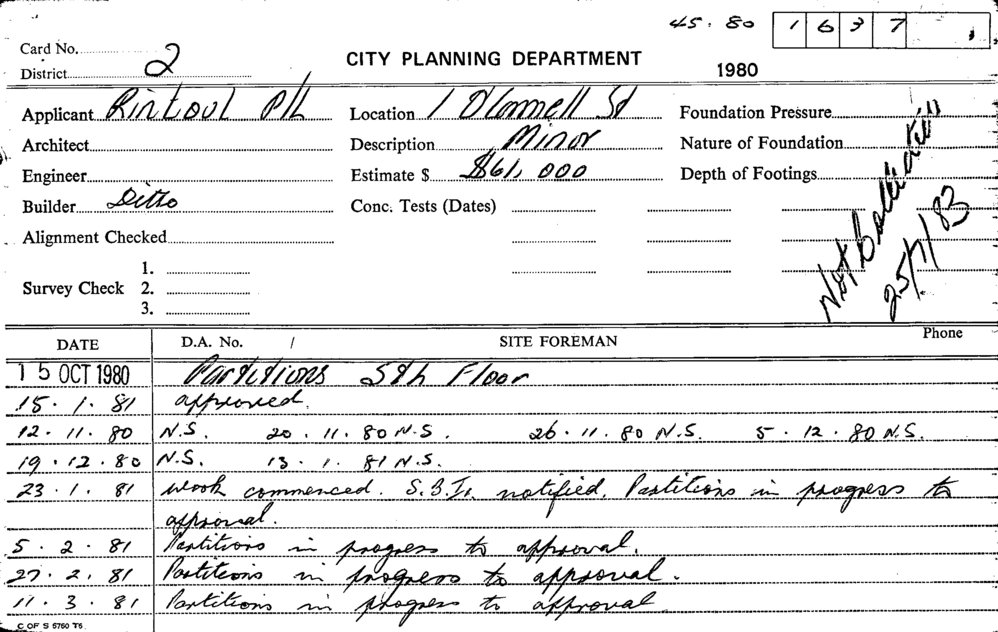 45. 80 1 6 3 7
Card No.
District 2
CITY PLANNING DEPARTMENT
1980
Applicant Rintoul P/L Location 1 O'Connell St Foundation Pressure
Architect Description Minor Nature of Foundation
Engineer Estimate $ $61,000 Depth of Footings
Builder Ditto Conc. Tests (Dates)
Alignment Checked
Survey Check 1.
2.
3.
Not
25/7/83
DATE D.A. No. / SITE FOREMAN Phone
15 OCT 1980 Partitions 5th Floor
15. 1. 81 approved.
12. 11. 80 N.S. 20. 11. 80 N.S. 26. 11. 80 N.S. 5. 12. 80 N.S.
19. 12. 80 N.S. 13. 1. 81 N.S.
23. 1. 81 Work commenced. S.B.I. notified. Partitions in progress to
approval.
5. 2. 81 Partitions in progress to approval.
27. 2. 81 Partitions in progress to approval.
11. 3. 81 Partitions in progress to approval
C OF S 5760 T6